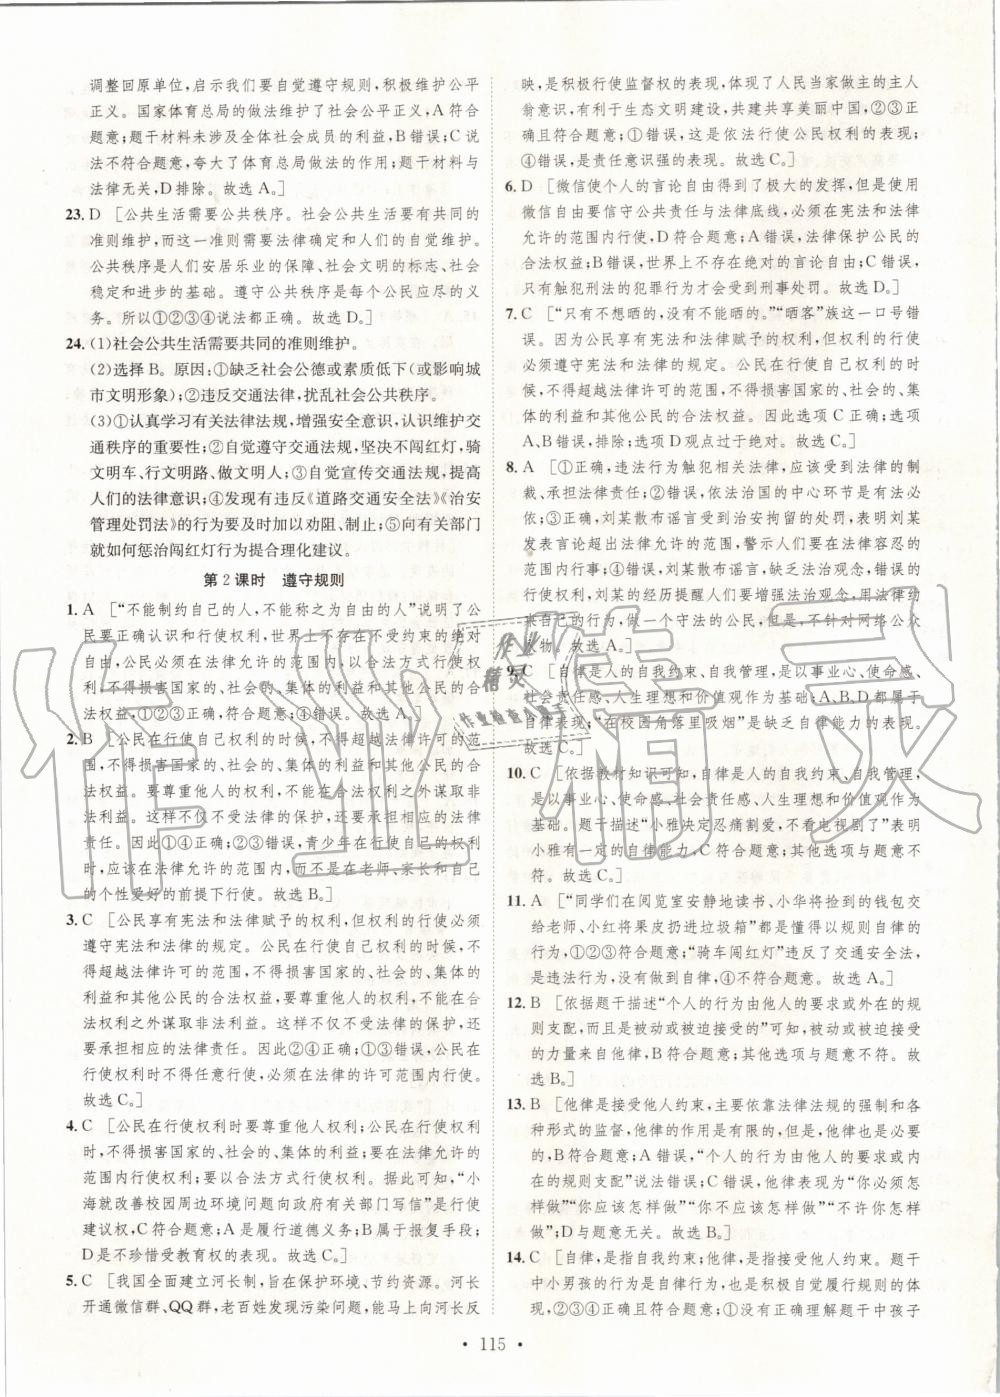 调整回原单位,启示我们要自觉遵守规则,积极维护公平
正义。国家体育总局的做法维护了社会公平正义,A符合
题意;题干材料未涉及全体社会成员的利益,B错误;C说
法不符合题意,夸大了体育总局做法的作用;题干材料与
法律无关,D排除。故选A。]
23. D [公共生活需要公共秩序。社会公共生活要有共同的
准则维护,而这一准则需要法律确定和人们的自觉维护。
公共秩序是人们安居乐业的保障、社会文明的标志、社会
稳定和进步的基础。遵守公共秩序是每个公民应尽的义
务。所以①②③④说法都正确。故选D。]
24. (1)社会公共生活需要共同的准则维护。
(2)选择B。原因:①缺乏社会公德或素质低下(或影响城
市文明形象);②违反交通法律,扰乱社会公共秩序。
(3)①认真学习有关法律法规,增强安全意识,认识维护交
通秩序的重要性;②自觉遵守交通法规,坚决不闯红灯,骑
文明车、行文明路、做文明人;③自觉宣传交通法规,提高
人们的法律意识;④发现有违反《道路交通安全法》《治安
管理处罚法》的行为要及时加以劝阻、制止;⑤向有关部门
就如何惩治闯红灯行为提合理化建议。
第2课时 遵守规则
1. A [“不能制约自己的人,不能称之为自由的人”说明了公
民要正确认识和行使权利,世界上不存在不受约束的绝对
自由,公民必须在法律允许的范围内,以合法方式行使权
利,不得损害国家的、社会的、集体的利益和其他公民的合
法权益。①②③正确;④错误。故选A。]
2. B [公民在行使自己权利的时候,不得超越法律许可的范
围,不得损害国家的、社会的、集体的利益和其他公民的合
法权益。要尊重他人权利,不得在权利之外谋取非
法利益。这样不仅不受法律的保护,还要承担相应的法律
责任。因此题干描述错误,青少年在行使自己的权利
时,应该在法律允许的范围内,而不是在老师、家长和自己
的个性爱好的前提下行使。故选B。]
3. C [公民享有宪法和法律赋予的权利,但权利的行使必须
遵守宪法和法律的规定。公民在行使自己权利的时候,不
得超越法律许可的范围,不得损害国家的、社会的、集体的
利益和其他公民的合法权益,要尊重他人权利,不得在
权利之外谋取非法利益。这样不仅不受法律的保护,还
要承担相应的法律责任。因此②④正确;①③错误,公民在
行使权利时不得任意行使,必须在法律的许可范围内行使。
故选C。]
4. C [公民在行使权利时要尊重他人权利,不得损害国家的、
社会的、集体的利益;公民行使权利,要在法律允许的
范围内行使权利;要以合法方式行使权利。依据教材,小
海就改善校园周边环境问题向政府有关部门写信”是行使
建议权,C符合题意;A是履行道德义务;B属于报复手段;
D是不珍惜受教育权的表现。故选C。]
5. C [我国全面建立河长制,旨在保护环境、节约资源。河长
开通微信群、QQ群,老百姓发现污染问题,能马上向河长反
映,是积极行使监督权的表现,体现了人民当家做主的主人
翁意识,有利于生态文明建设,共建共享美丽中国,②③正
确且符合题意;①错误,这是依法行使公民权利的表现;
④错误,是责任意识强的表现。故选C。]
6. D [微信使个人的言论自由得到了极大的发挥,但是使用
微信自由要信守公共责任与法律底线,必须在宪法和法律
允许的范围内行使,D符合题意;A错误,法律保护公民的
合法权益;B错误,世界上不存在绝对的言论自由;C错误,
只有触犯刑法的犯罪行为才会受到刑事处罚。故选D。]
7. C [“只有不想晒的,没有不能晒的。”“晒客”族这一口号错
误。因为公民享有宪法和法律赋予的权利,但权利的行使
必须遵守宪法和法律的规定。公民在行使自己权利的时
候,不得超越法律许可的范围,不得损害国家的、社会的、集
体的利益和其他公民的合法权益。因此选项C正确;选项
A、B错误,排除;选项D观点过于绝对。故选C。]
8. A [①正确,违法行为触犯相关法律,应该受到法律的制
裁、承担法律责任;②错误,依法治国的中心环节是有法必
依;③正确,刘某散布谣言受到治安拘留的处罚,表明刘某
发表言论超出法律允许的范围,警示人们要在法律容忍的
范围内行事;④错误,刘某散布谣言,缺乏法治观念,是违法
行为;⑤正确,刘某的经历提醒人们要增强法治观念,用法律约
束自己的行为,做一个守法的公民,但是,不针对网络公众
人物。故选A。]
9. C [自律是人的自我约束、自我管理,是以事业心、使命感、
社会责任感、人生理想和价值观作为基础;A、B、D都属于
自律表现;“在校园角落里吸烟”是缺乏自律能力的表现。
故选C。]
10. C [依据教材知识可知,自律是人的自我约束、自我管理,
是以事业心、使命感、社会责任感、人生理想和价值观作为
基础。题干描述“小雅决定忍痛割爱,不看电视剧了”表明
小雅有一定的自律能力,C符合题意;其他选项与题意不
符。故选C。]
11. A [“同学们在阅览室安静地读书、小华将捡到的钱包交
给老师、小红将果皮扔进垃圾箱”都是懂得以规则自律的
行为,①②③符合题意;“骑车闯红灯”违反了交通安全法,
是违法行为,没有做到自律,④不符合题意。故选A。]
12. B [依据题干描述“个人的行为由他人的要求或外在的规
则支配,而且是被动或被迫接受的”可知,被动或被迫接受
的行为是他律,B符合题意;其他选项与题意不符。故
选B。]
13. B [他律是接受他人约束,主要依靠法律法规的强制和各
种形式的监督,他律的作用是有限的,但又是必不可少的,
B符合题意;A错误,“个人的行为由他人的要求或内
在的规则支配”说法错误;C错误,他律表现为“你必须怎
样做”“你应该怎样做”“你不应该怎样做”“不许你怎样
做”;D与题意无关。故选B。]
14. C [自律,是指自我约束;他律,是指接受他人约束。题干
中小男孩的行为是自律行为,也是积极自觉履行规则的体
现,②③④正确且符合题意;①没有正确理解题干中孩子
• 115 •
作业精灵
作业
精灵
作业检查小助手